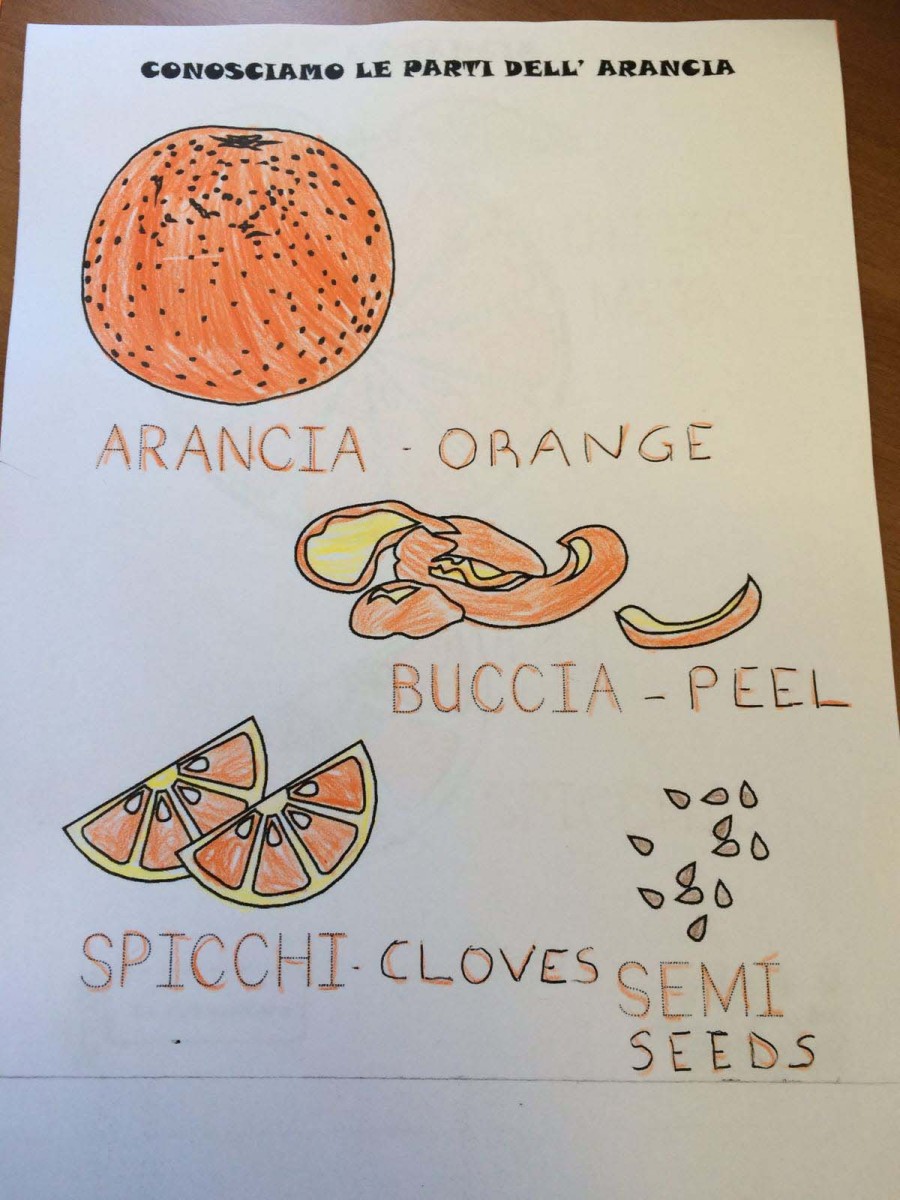 CONOSCIAMO LE PARTI DELL' ARANCIA
ARANCIA - ORANGE
BUCCIA - PEEL
SPICCHI - CLOVES
SEMI
SEEDS